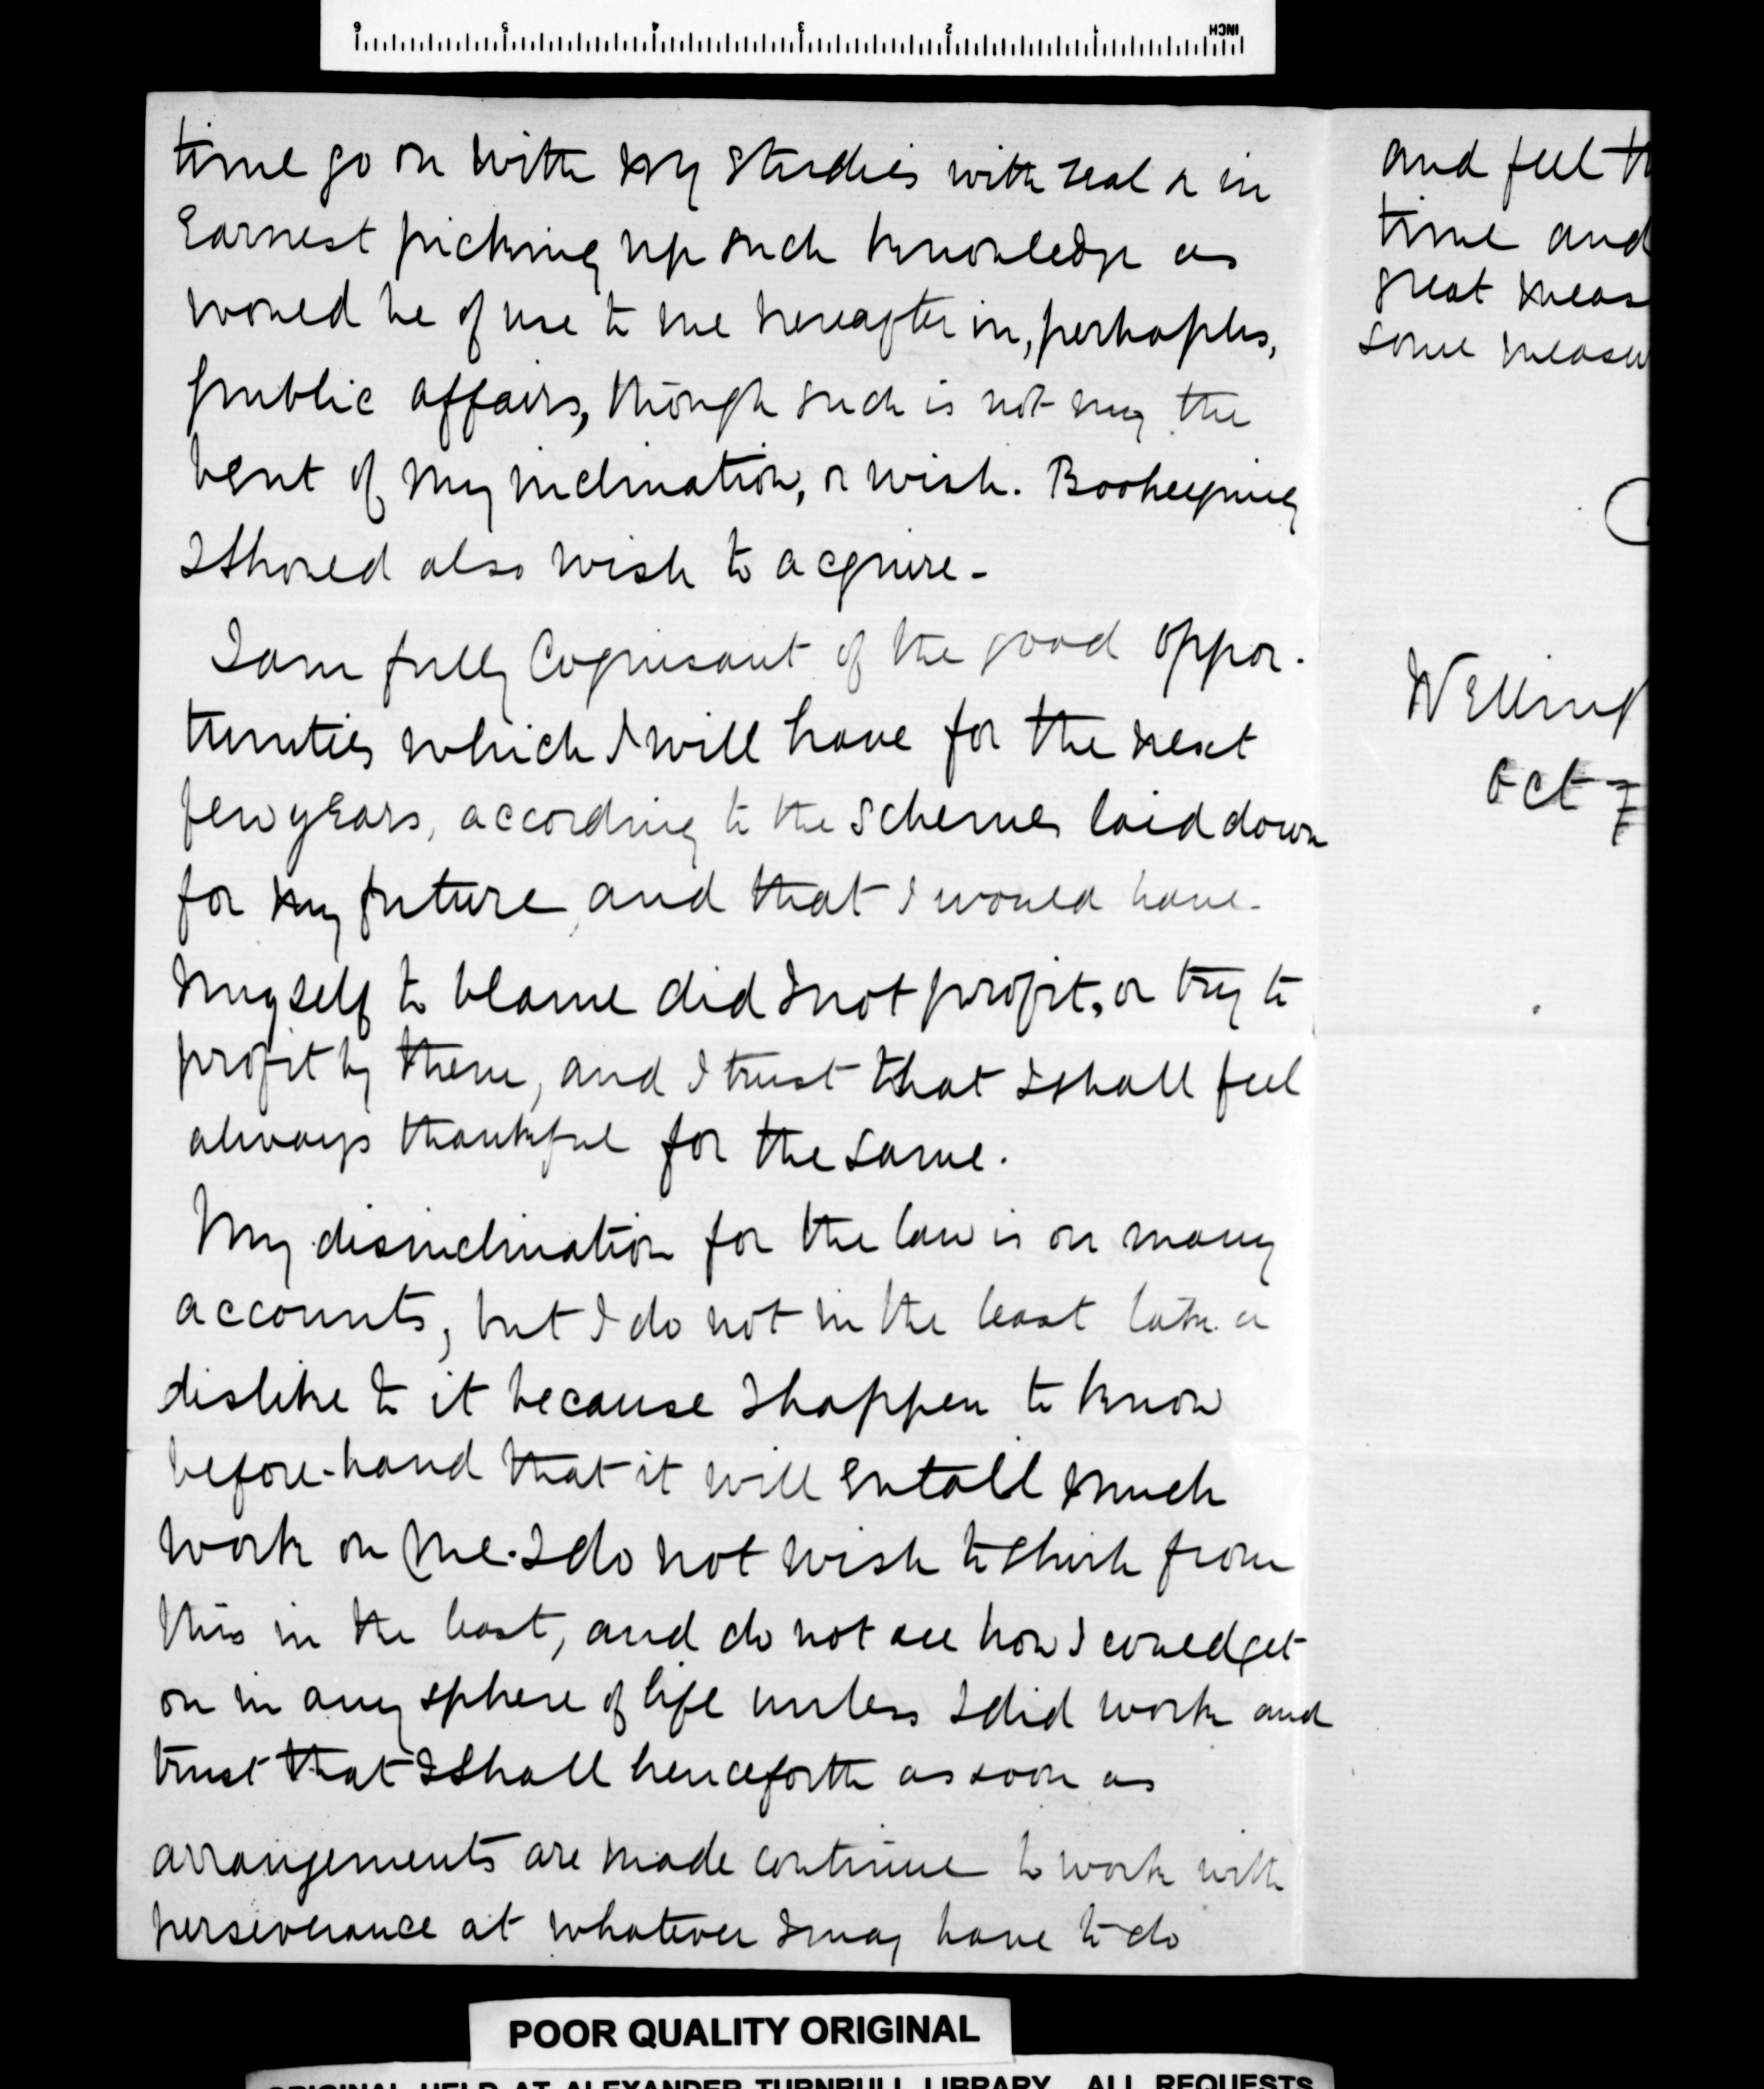 INCH
6 5 4 3 2 1
time go on with my studies with zeal & in
Earnest picking up such knowledge as
would be of use to me hereafter in, perhaphs,
public affairs, though such is not my the
bent of my inclination, or wish. Bookeeping
I should also wish to acquire -
I am fully Cognisant of the good oppor-
tunities which I will have for the next
few years, according to the schemes laid down
for my future, and that I would have
myself to blame did I not profit, or try to
profit by them, and I trust that I shall feel
always thankful for the same.
My disinclination for the law is on many
accounts, but I do not in the least take a
dislike to it because I happen to know
before-hand that it will entail much
work on me. I do not wish to shirk from
this in the least, and do not see how I could get
on in any sphere of life unless I did work and
trust that I shall henceforth as soon as
arrangements are made continue to work with
perseverance at whatever I may have to do
and feel th
time and
great meas
some measu
Welling
Oct 7
POOR QUALITY ORIGINAL
ORIGINAL HELD AT ALEXANDER TURNBULL LIBRARY. ALL REQUESTS